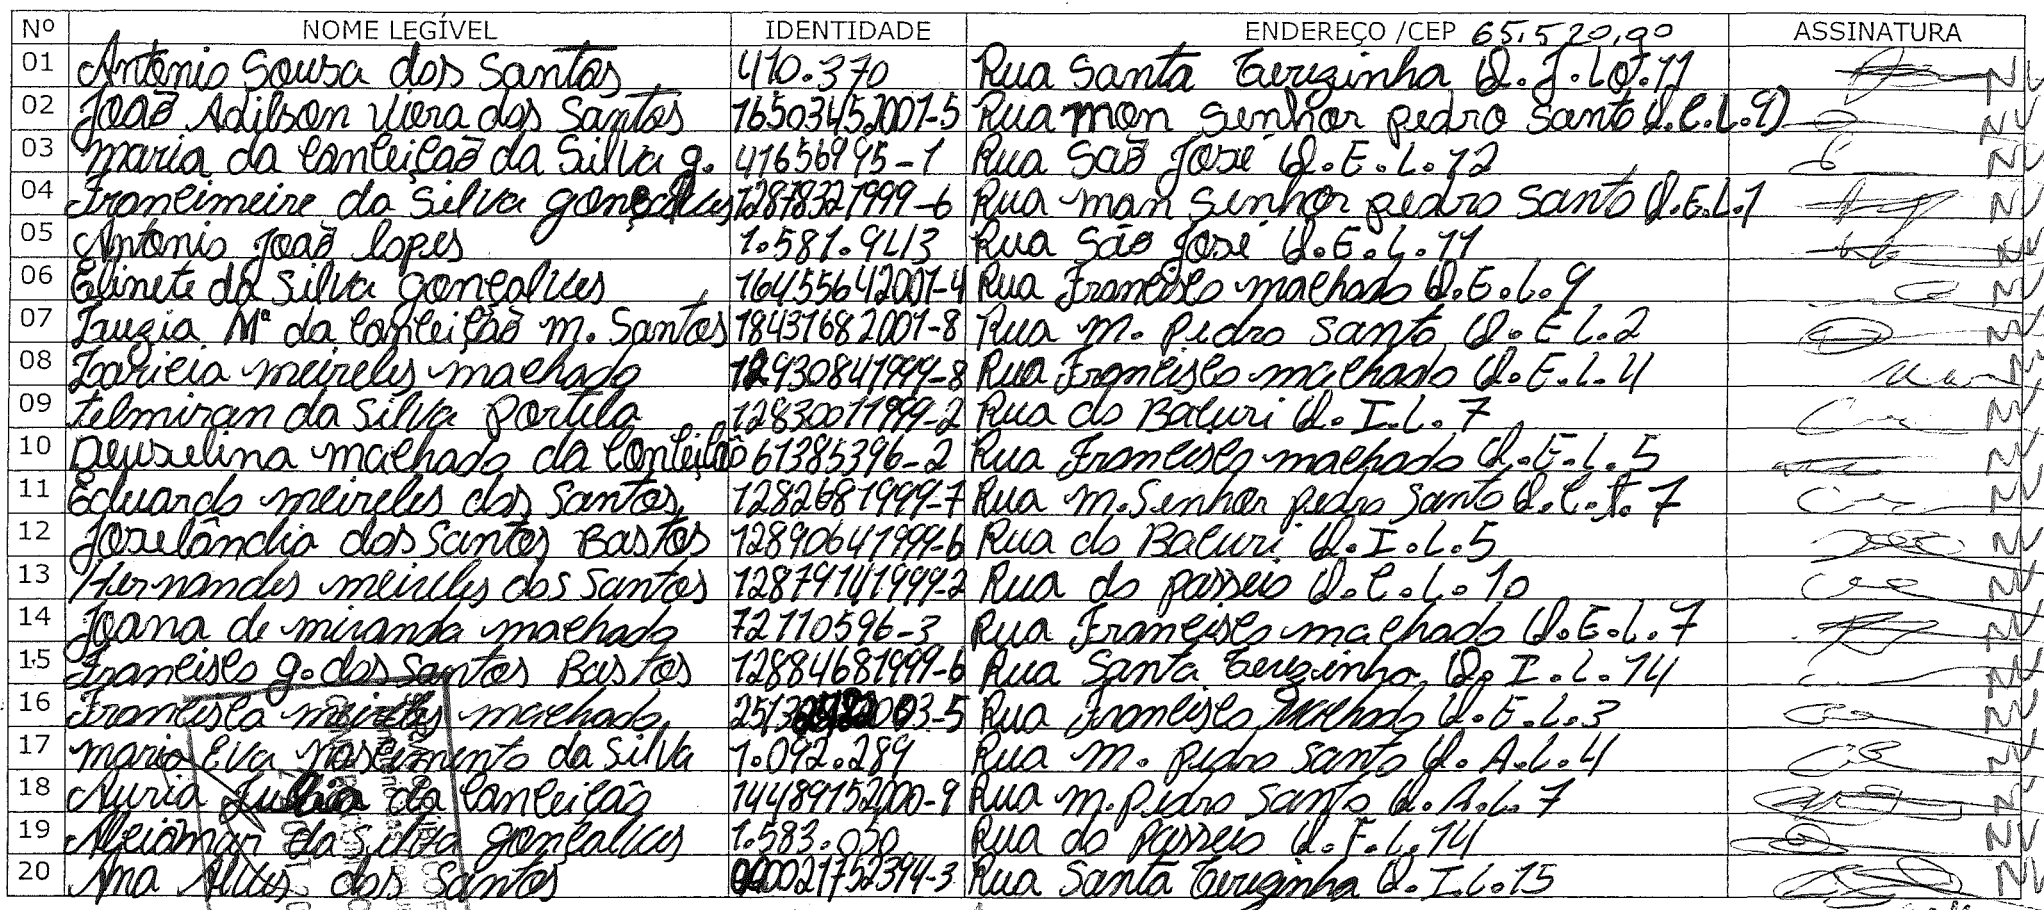 Nº NOME LEGÍVEL IDENTIDADE ENDEREÇO /CEP 65.520,90 ASSINATURA
01 Antonio Sousa dos Santos 410.370 Rua Santa Terezinha Q. J. Lo.11
02 João Adilson Viera dos Santos 16503452001-5 Rua mon senhor pedro santo Q.C.L.9
03 maria da Conceição da Silva g. 41656995-1 Rua São José Q.E.L.12
04 Francimeire da Silva gonçalves 12878321999-6 Rua mon senhor pedro santo Q.E.L.1
05 Antonio João Lopes 1.581.943 Rua São José Q.E.L.11
06 Elinete da Silva gonçalves 164555642001-4 Rua Francisco machado Q.E.L.9
07 Luzia Mª da Conceição m. Santos 18431682001-8 Rua m. Pedro Santo Q.E L.2
08 Laricia meireles machado 12930841999-8 Rua Francisco machado Q.E.L.4
09 Telmiran da Silva Portila 12830011999-2 Rua do Bacuri Q.I.L.7
10 Deuselina machado da Conceição 61385396-2 Rua Francisco machado Q.E.L.5
11 Eduardo meireles dos Santos 1282681999-7 Rua m.Senhor pedro Santo Q.C.L.7
12 Joselândia dos Santos Bastos 12890641999-6 Rua do Bacuri Q.I.L.5
13 Hernandes meireles dos Santos 12879141999-2 Rua do passeio Q.C.L.10
14 Joana de miranda machado 72110596-3 Rua Francisco machado Q.E.L.7
15 Francisco g. dos Santos Bastos 12884681999-6 Rua Santa Terezinha Q. I.L.14
16 Francisca meireles machado Rua Francisco Machado Q.E.L.3
17 maria Eva Nascimento da Silva 1.092.289 Rua m. pedro santo Q.A.L.4
18 Nuria da Conceição 14489152000-9 Rua m.pedro Santo Q.A.L 7
19 da Silva gonçalves 1.583.050 Rua do Passeio Q.F.L.14
20 Ana Alves dos Santos Rua Santa Terezinha Q.I.L.15